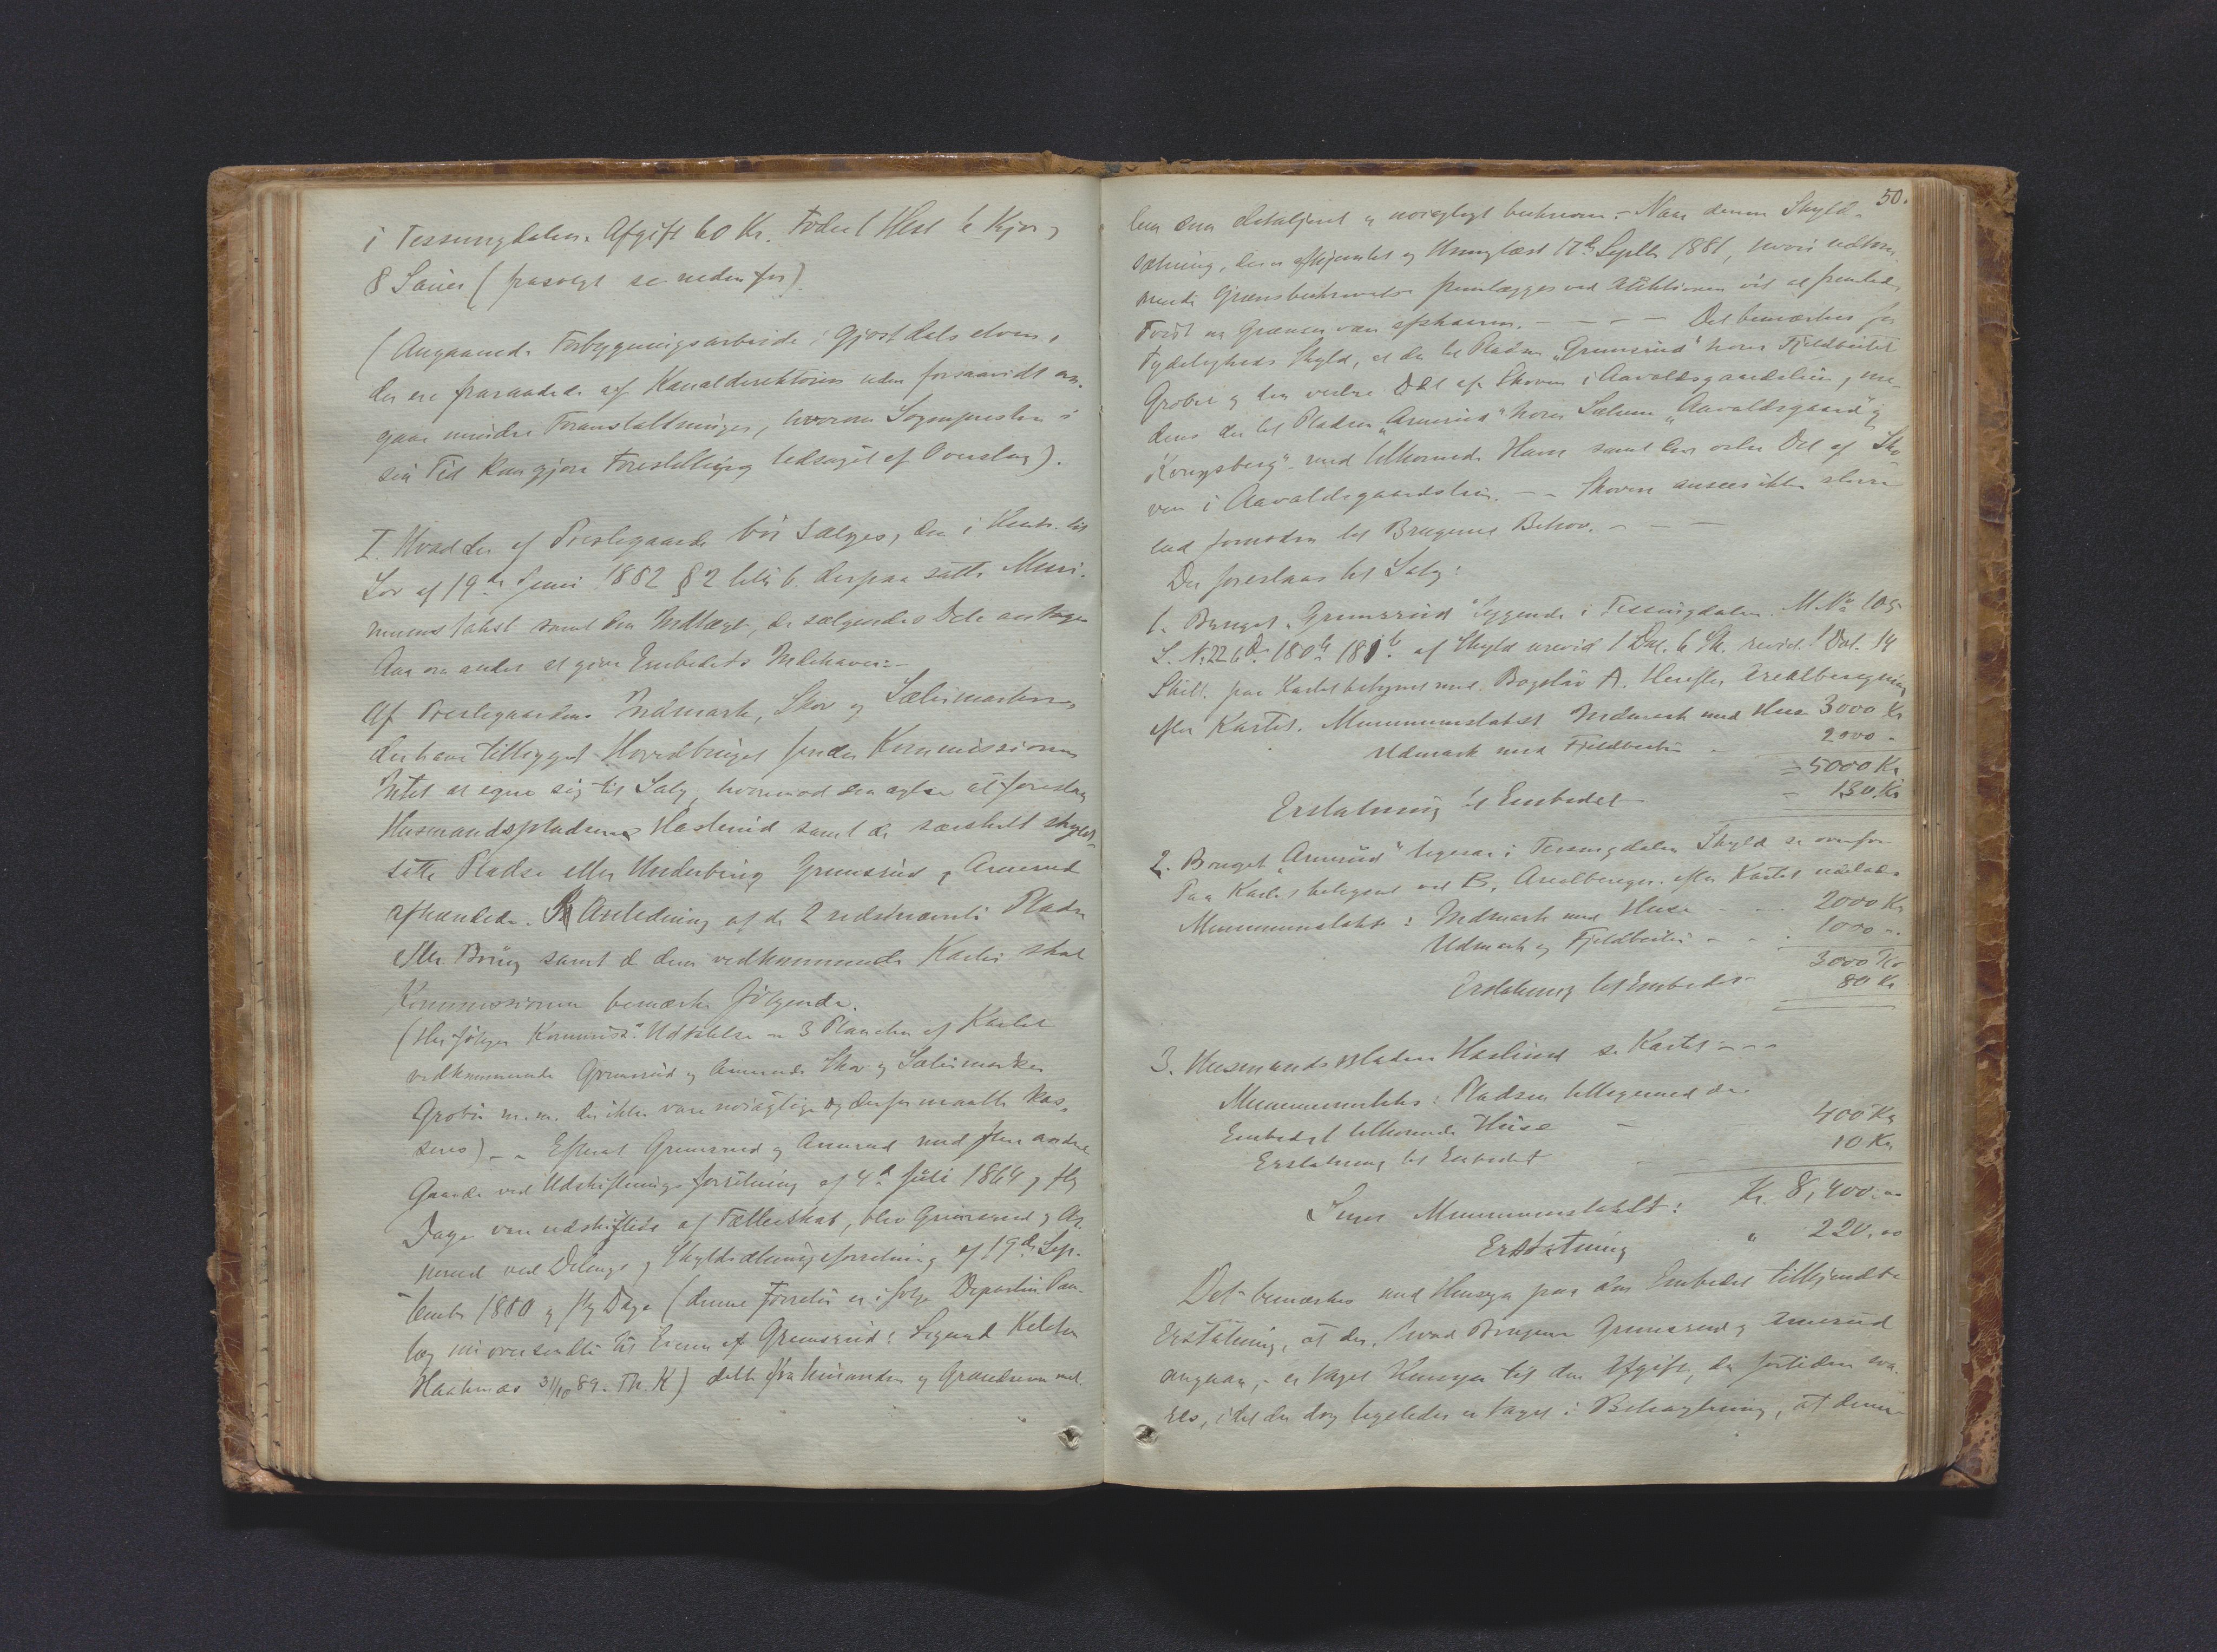 i Tessungdalen. Afgift 60 Kr. Føder 1 Hest 6 Kjør og
8 Sauer (frasolgt se nedenfor).
(Angaaende Forbygningsarbeide i Gjøstdalselven,
der ere fraraadede af Kanaldirektøren uden forsaavidt an-
gaar mindre Foranstaltninger, hvorom Sognepresten i
sin Tid kan gjøre Forestilling ledsaget af Overslag).
I. Hvad der af Prestegaarde bør sælges, den i Henh. til
Lov af 19de Juni 1882 § 2 litr. b. derpaa satte Mini-
mumstakst samt den Indtægt, de sælgendes Dele antages
Aar om andet at give Embedets Indehaver.-
Af Prestegaardens Indmark, Skov og Sætermarken,
der have tilligget Hovedbruget finder Kommissionen
Intet at egne sig til Salg, hvorimod den agter at foreslaa
Husmandspladsen Haslerud samt de særskilt skyld-
satte Pladse eller Underbrug Grunsrud og Arnerud
afhændede. I Anledning af de 2 sidstnævnte Pladse
eller Brug samt de dem vedkommende Karter skal
Kommissionen bemærke følgende.
(Her følger Kommiss. Udtalelse om 3 Plancher af Kartet
vedkommende Grunsrud og Arneruds Skov og Sætermarker
Grobu m.m. der ikke vare nøiagtige og derfor maatte kas-
seres) - - Efterat Grunsrud og Arnerud med flere andre
Gaarde ved Udskiftningsforretning af 4de Juli 1864 og flg
Dage vare udskiftede af Fællesskab, blev Grunsrud og Ar-
nerud ved Delings og Skyldsætningsforretning af 19de Sep-
tember 1880 og flg Dage (denne Forretn. er i følge Departem. Paa-
læg mi oversendte til Eieren af Grunsrud: Sigurd Kittelsen
Haatenæs 31/10 89. Th. K) delte fra hinanden og Grændserne mel-
50.
lem dem detaljeret og nøiagtigt beskrevne.- Naar denne Skyld-
sætning, der er afhjemlet og thinglæst 17de Septbr 1881, hvori vedkom-
mende Grænsebeskrivelse fremlægges ved Auktionen vil al fremtidig
Tvist om Grænsen være afskaaren. - - - - Det bemærkes for
Tydeligheds Skyld, at der til Pladsen „Grunsrud" hører Fjeldbeitet
Grobu og den vestre Del af Skoven i Aavaldsgaardslien, me-
dens der til Pladsen „Arnerud" hører Sæteren „Aavaldsgaard" og
„Kongsberg" med tilhørende Havn samt den østre Del af Sko-
ven i Aavaldsgaardslien. - - Skoven ansees ikke større
end fornøden til Brugenes Behov. - - -
Der foreslaaes til Salg:
1. Bruget „Grunsrud" liggende i Tessungdalen. M.No 105
L. N. 226d 180b 181b af Skyld urevid 1 Dal. 6 Sk. revid. 1 Dal. 14
Skill. paa Kartet betegnet med Bogstav A. Herefter Arealberegning
efter Kartet. Minimumstakst Indmark med Huse 3000 Kr
Udmark med Fjeldbeite - 2000 -
= 5000 Kr
Erstatning til Embedet - = 130 Kr
2. Bruget „Arnerud" ligesaa i Tessungdalen Skyld se ovenfor
Paa Kartet betegnet ved B, Arealberegn. efter Kartet udelades
Minimumstakst: Indmark med Huse - - - 2000 Kr
Udmark og Fjeldbeite - - - 1000 -
3000 Kr
Erstatning til Embedet - 80 Kr
3. Husmandspladsen Haslerud se Kartet - - -
Minimumstakst: Pladsen tilligemed de
Embedet tilhørende Huse - 400 Kr
Erstatning til Embedet - 10 Kr
Sum Minimumstakst: Kr. 8,400.00
Erstatning „ 220.00
Det bemærkes med Hensyn paa den Embedet tilkjendte
Erstatning, at der, hvad Brugene Grunsrud og Arnerud
angaar, - er taget Hensyn til den Afgift, der fortiden sva-
res, idet der dog ligeledes er taget i Betragtning, at denne